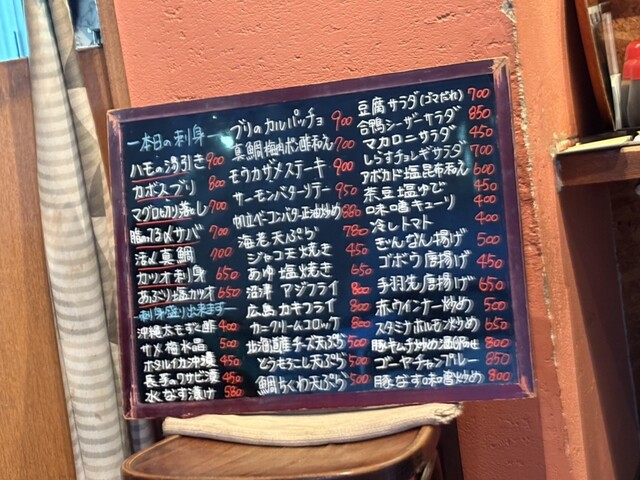 一本日の刺身一
ハモの湯引き 900
カボスブリ 800
マグロ切り落し 700
サバ 700
活〆真鯛 700
カツオ刺身 650
あぶり塩カツオ 650
刺身盛り出来ます
沖縄太もずく酢 400
サメ梅水晶 500
ホタルイカ沖漬 450
長芋のワサビ漬 450
水なす漬け 580
ブリのカルパッチョ 900
真鯛梅肉ポン酢和え 700
モウカザメステーキ 900
サーモンバターソテー 950
帆立ベーコンバター正油炒め 880
海老天ぷら 780
ジャコ天焼き 450
あゆ塩焼き 650
沼津アジフライ 800
広島カキフライ 800
カニクリームコロッケ 800
北海道産チーズ天ぷら 500
とうもろこし天ぷら 500
鯛ちくわ天ぷら 500
豆腐サラダ(ゴマだれ) 700
合鴨シーザーサラダ 850
マカロニサラダ 450
しらすチョレギサラダ 700
アボカド塩昆布和え 600
茶豆塩ゆで 450
味噌キューリ 400
冷しトマト 400
ぎんなん揚げ 500
ゴボウ唐揚げ 450
手羽先唐揚げ 650
赤ウインナー炒め 500
スタミナホルモン炒め 650
豚キムチ炒め 800
ゴーヤチャンプレー 850
豚なす味噌炒め 800